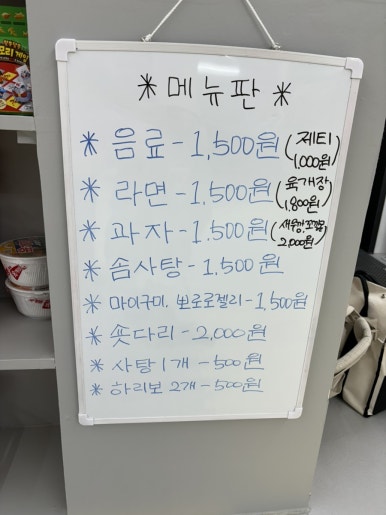 * 메뉴판 *
* 음료 - 1,500원 (제티 1,000원)
* 라면 - 1,500원 (육개장 1,800원)
* 과자 - 1.500원 (새우깡, 꼬깔콘 2,000원)
* 솜사탕 - 1,500원
* 마이구미, 뽀로로젤리 - 1,500원
* 숏다리 - 2,000원
* 사탕 1개 - 500원
* 하리보 2개 - 500원